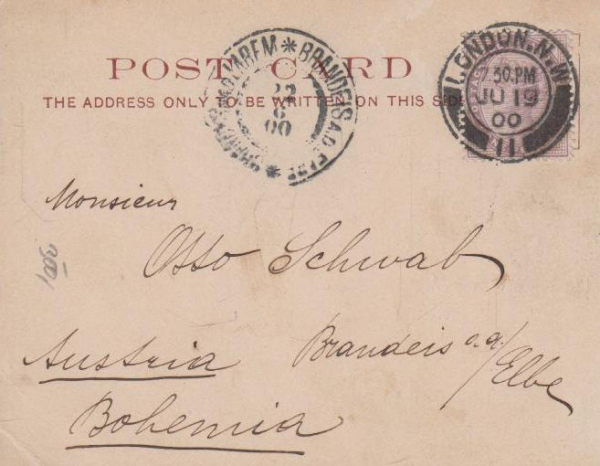 POST CARD
THE ADDRESS ONLY TO BE WRITTEN ON THIS
BRANDEIS A.D. ELBE
22
6
00
LONDON.N.W
7.30.PM
JU 19
00
11
Monsieur
Otto Schwab
Brandeis a.a/Elbe
Austria
Bohemia